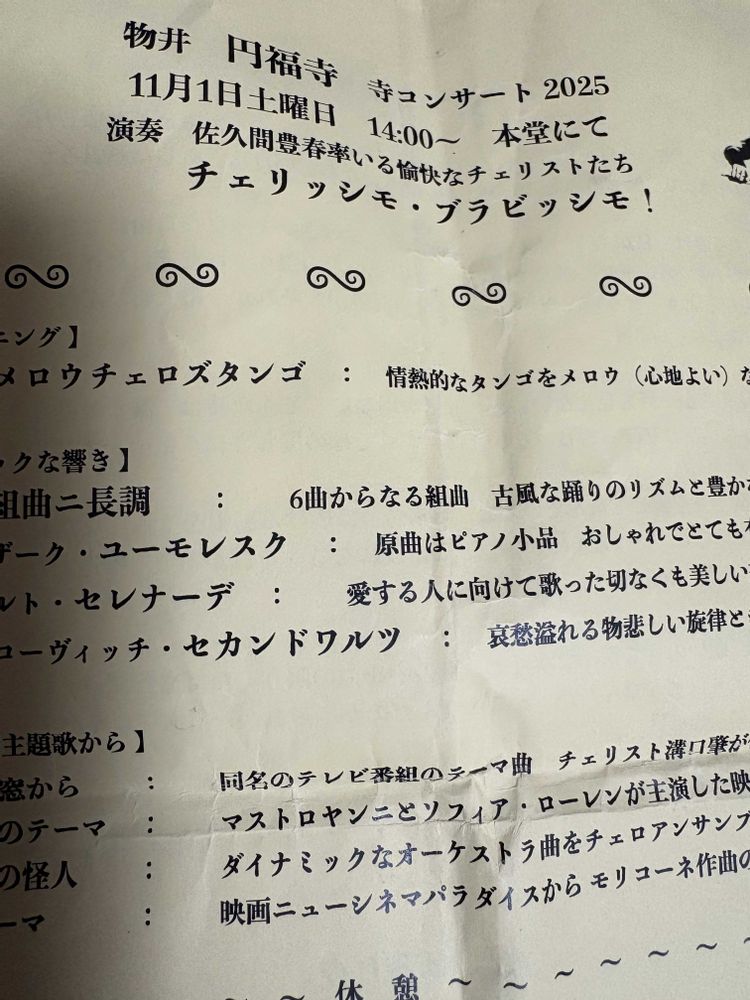 物井 円福寺 寺コンサート 2025
11月1日土曜日 14:00～ 本堂にて
演奏 佐久間豊春率いる愉快なチェリストたち
チェリッシモ・ブラビッシモ！
ニング】
メロウチェロズタンゴ ： 情熱的なタンゴをメロウ（心地よい）な
ックな響き】
組曲ニ長調 ： 6曲からなる組曲 古風な踊りのリズムと豊かな
ザーク・ユーモレスク ： 原曲はピアノ小品 おしゃれでとても
ルト・セレナーデ ： 愛する人に向けて歌った切なくも美しい
コーヴィッチ・セカンドワルツ ： 哀愁溢れる物悲しい旋律と
主題歌から】
窓から ： 同名のテレビ番組のテーマ曲 チェリスト溝口肇が
のテーマ ： マストロヤンニとソフィア・ローレンが主演した映
の怪人 ： ダイナミックなオーケストラ曲をチェロアンサンブ
ーマ ： 映画ニューシネマパラダイスから モリコーネ作曲の
～ ～ 休 憩 ～ ～ ～ ～ ～ ～ ～